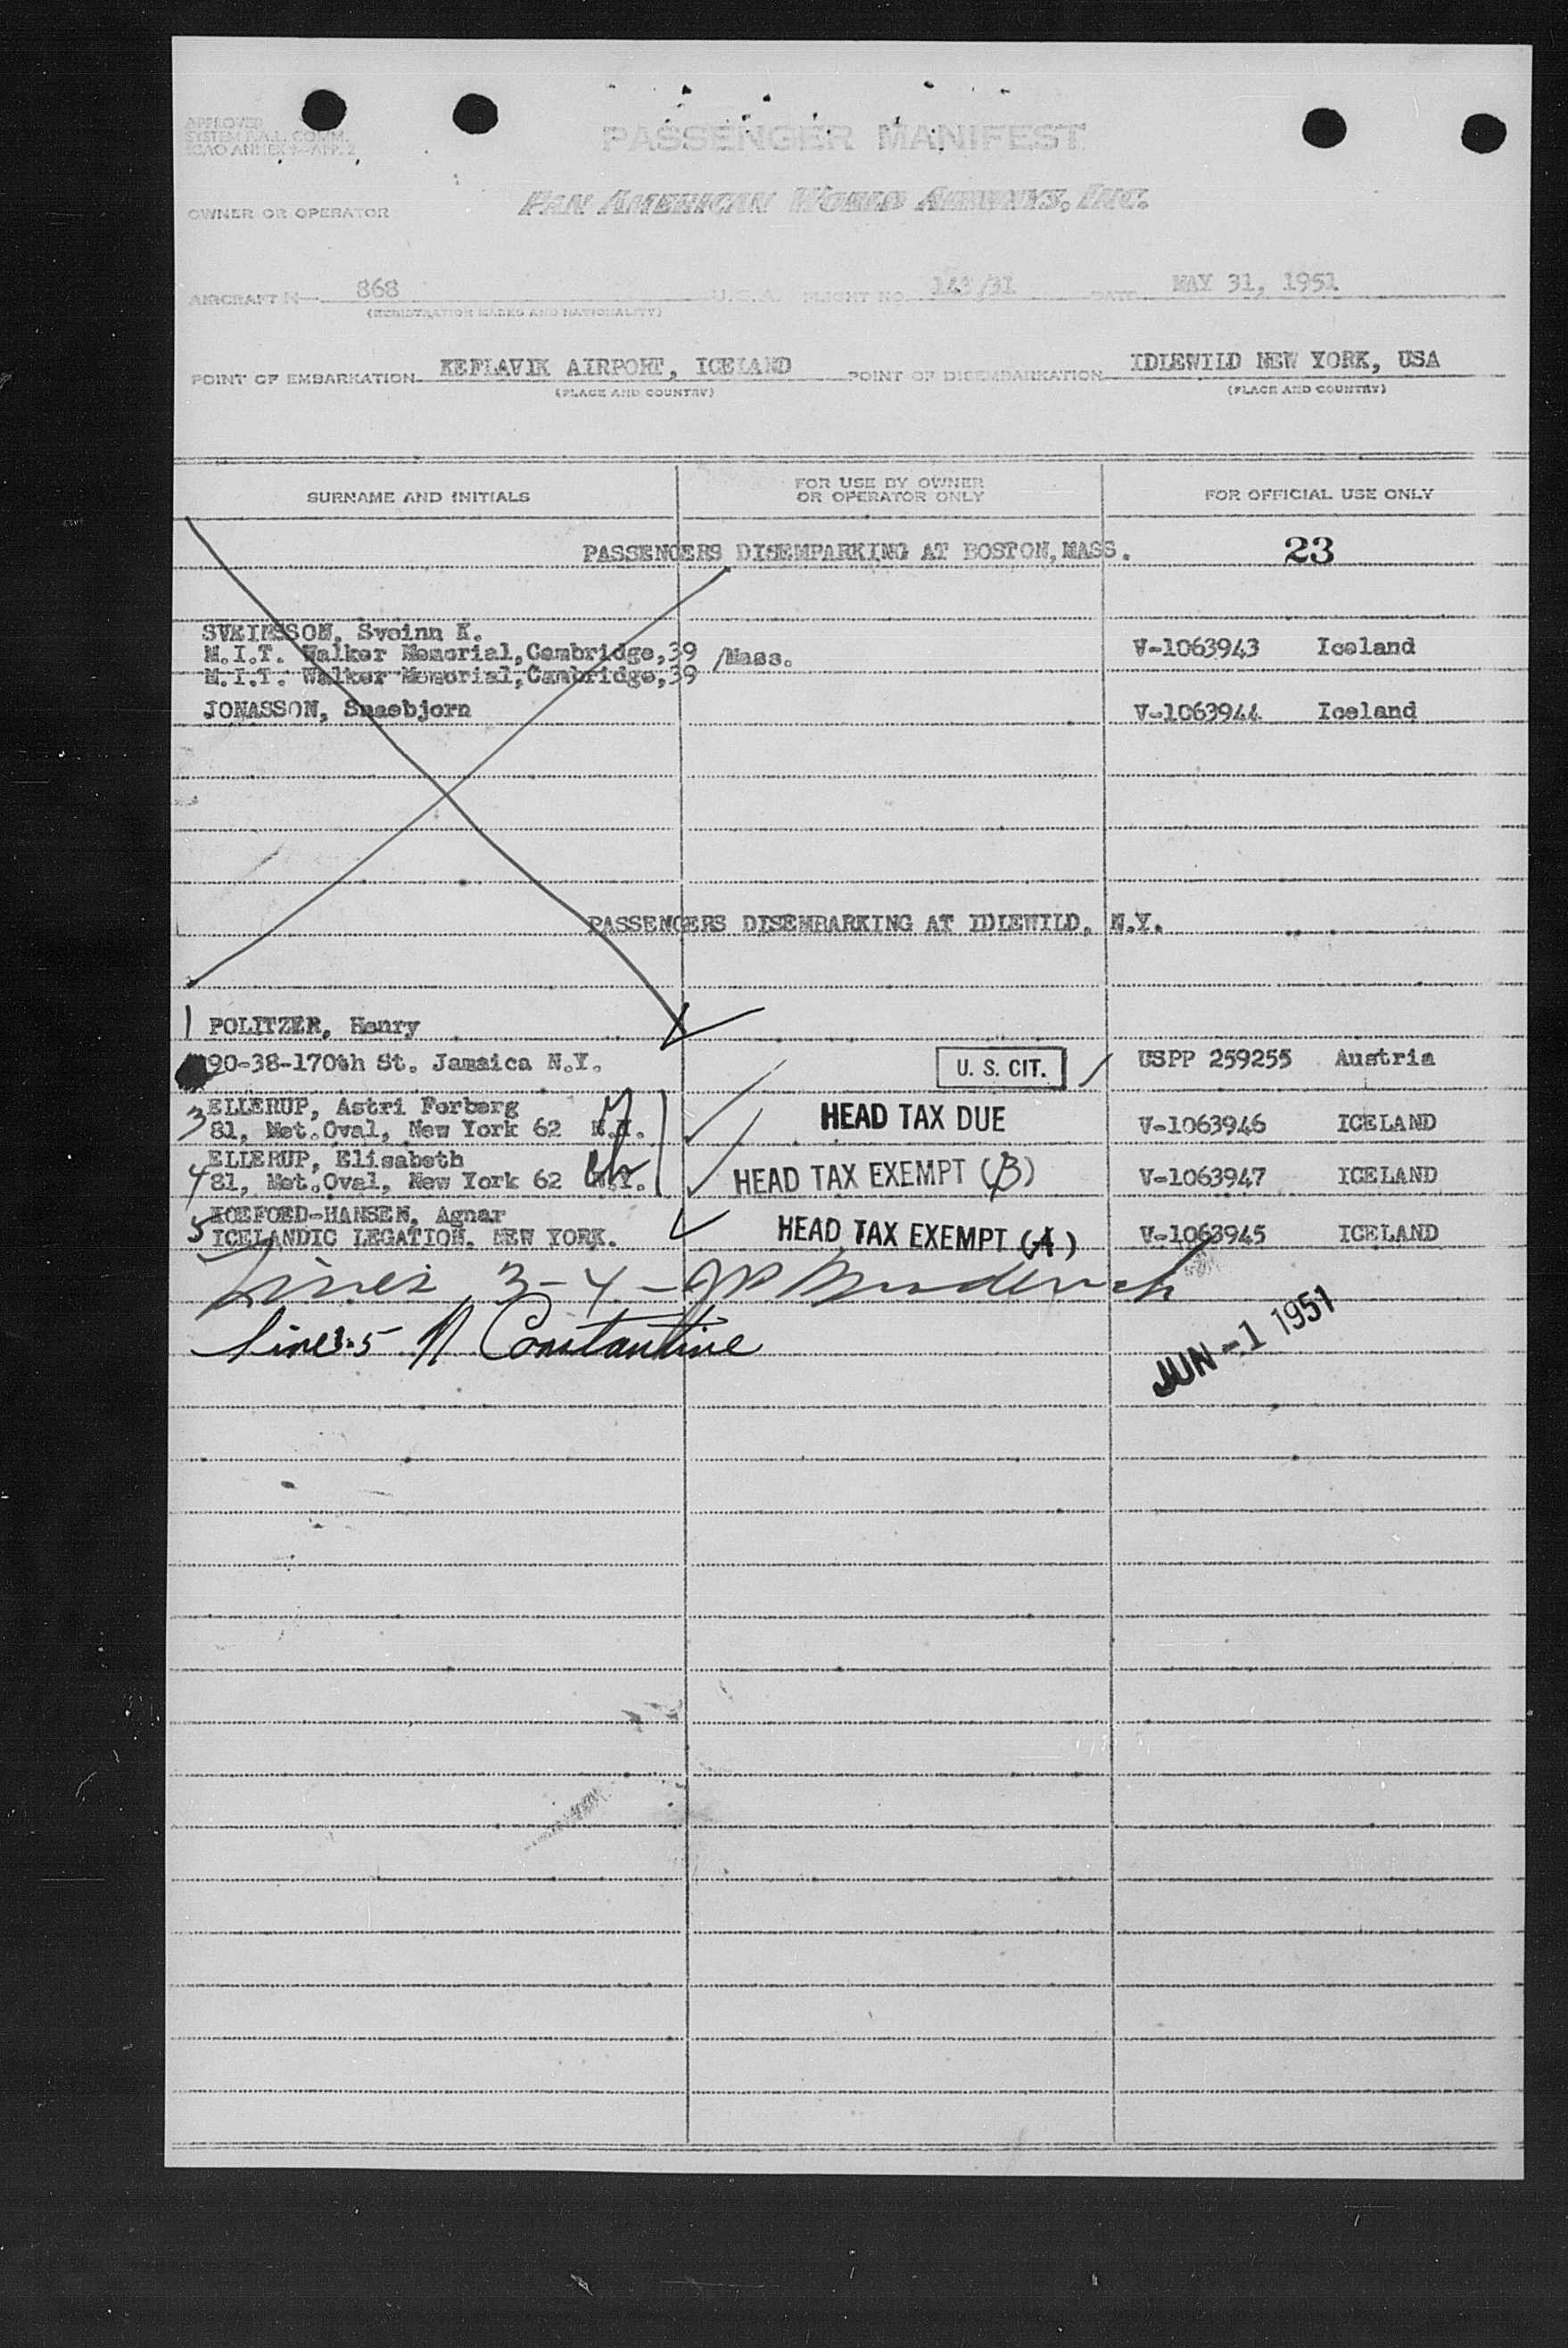 APPROVED
SYSTEM F.A.L. COMM.
ICAO ANNEX 9—APP. 2
PASSENGER MANIFEST
OWNER OR OPERATOR PAN AMERICAN WORLD AIRWAYS, INC.
AIRCRAFT N— 868 U.S.A. FLIGHT NO. /31 DATE MAY 31, 1951
(REGISTRATION MARKS AND NATIONALITY)
POINT OF EMBARKATION KEFLAVIK AIRPORT, ICELAND POINT OF DISEMBARKATION IDLEWILD NEW YORK, USA
(PLACE AND COUNTRY) (PLACE AND COUNTRY)
SURNAME AND INITIALS FOR USE BY OWNER OR OPERATOR ONLY FOR OFFICIAL USE ONLY
PASSENGERS DISEMPARKING AT BOSTON, MASS. 23
SVEINSSON, Sveinn K.
M.I.T. Walker Memorial, Cambridge, 39 /Mass. V-1063943 Iceland
M.I.T. Walker Memorial, Cambridge, 39
JONASSON, Snaebjorn V-1063944 Iceland
PASSENGERS DISEMBARKING AT IDLEWILD, N.Y.
1 POLITZER, Henry
90-38-170th St. Jamaica N.Y. U. S. CIT. USPP 259255 Austria
3 ELLERUP, Astri Forberg
81, Met.Oval, New York 62 N.Y. HEAD TAX DUE V-1063946 ICELAND
4 ELLERUP, Elisabeth
81, Met.Oval, New York 62 N.Y. HEAD TAX EXEMPT (B) V-1063947 ICELAND
5 KOEFOED-HANSEN, Agnar
ICELANDIC LEGATION. NEW YORK. HEAD TAX EXEMPT (A) V-1063945 ICELAND
Lines 3-4-
Lines 1-5 N Constantine
JUN -1 1951